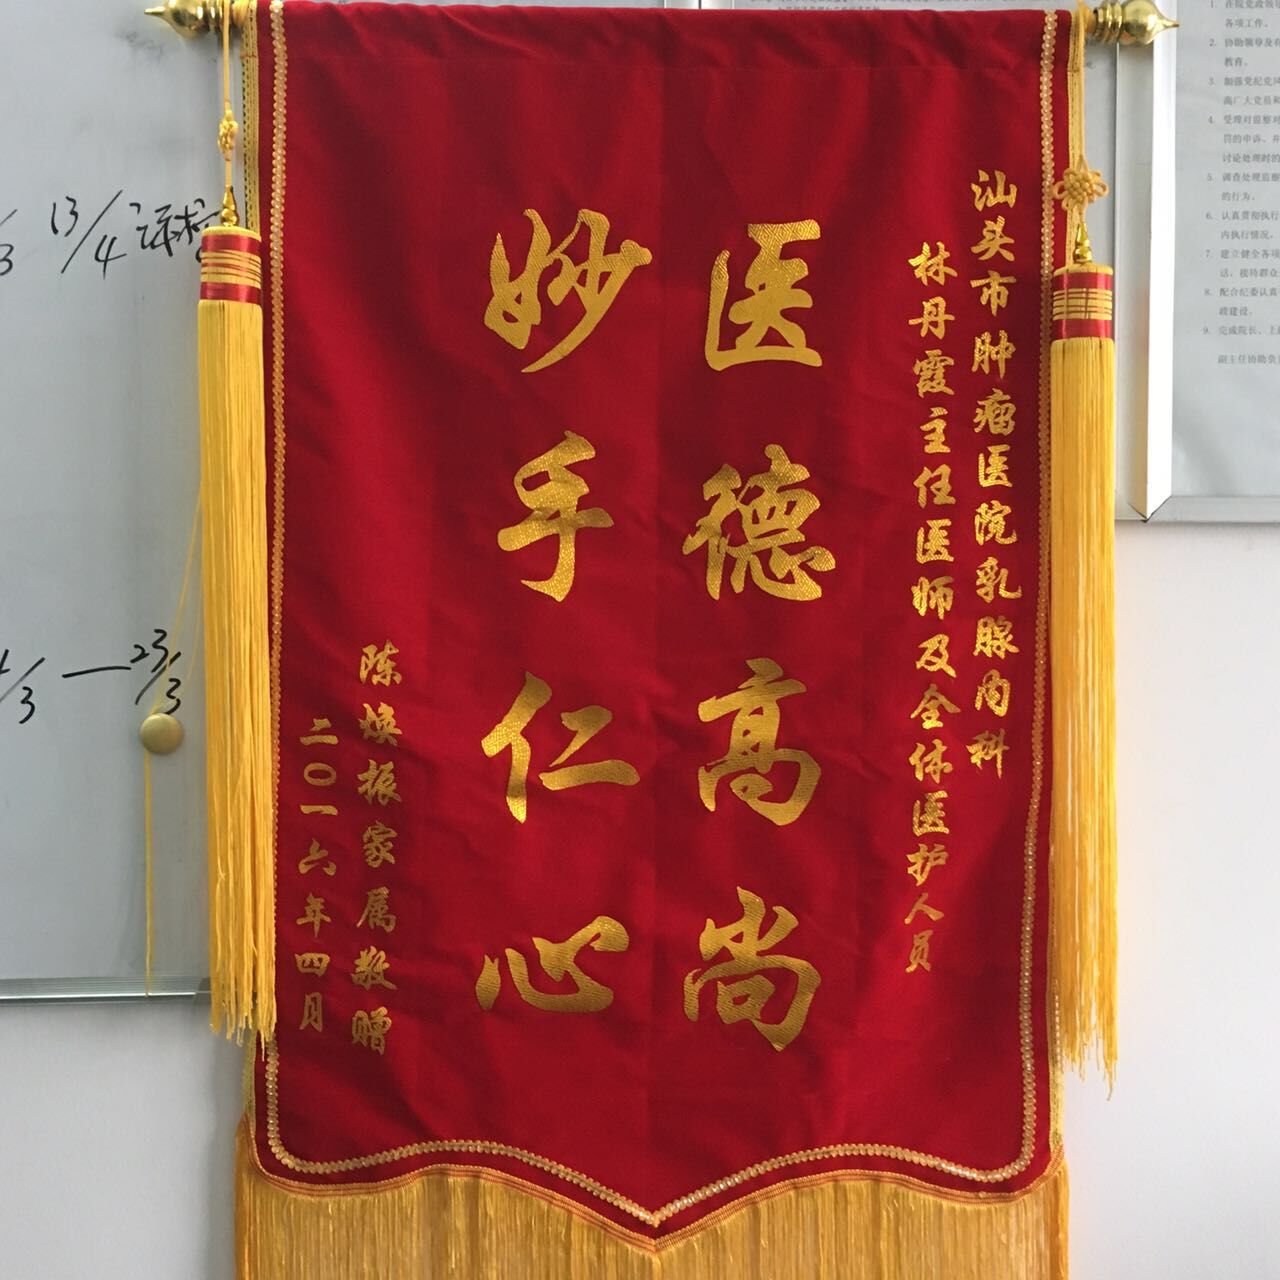 汕头市肿瘤医院乳腺内科
林丹霞主任医师及全体医护人员
医德高尚
妙手仁心
陈焕振家属敬赠
二〇一六年四月
13/4
23/3
1. 在院党政领导
各项工作。
2. 协助领导及有
教育。
3. 加强党纪党风
高广大党员和
4. 受理对监察对
罚的申诉、并
讨论处理时的
5. 调查处理监察
的行为。
6. 认真贯彻执行
内执行情况,
7. 建立健全各项
话,接待群众
8. 配合纪委认真
政建设。
9. 完成院长、上级
副主任协助负责